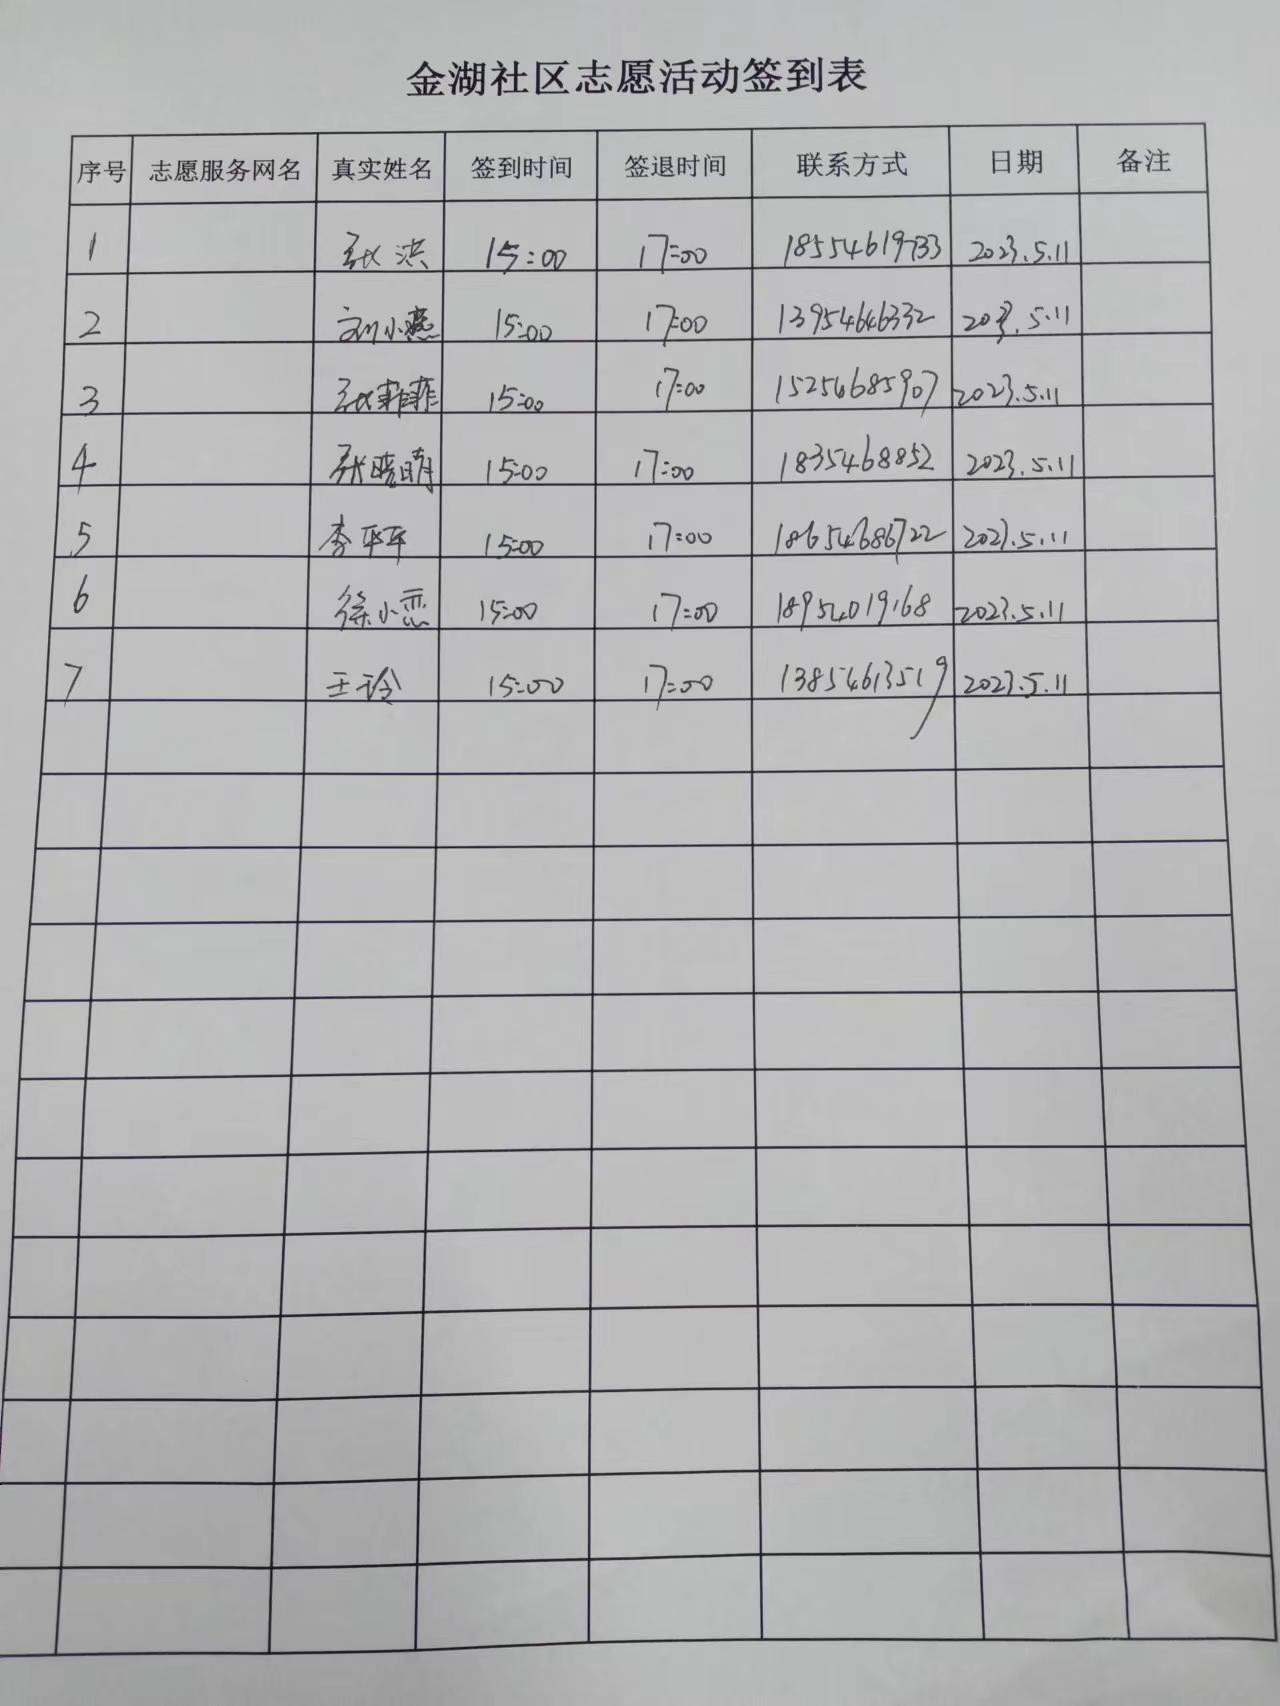 金湖社区志愿活动签到表
序号 志愿服务网名 真实姓名 签到时间 签退时间 联系方式 日期 备注
1 张洪 15:00 17:00 18554619733 2023.5.11
2 刘小燕 15:00 17:00 13954646332 2023.5.11
3 张菲菲 15:00 17:00 15254685907 2023.5.11
4 张晓明 15:00 17:00 1835468852 2023.5.11
5 李平平 15:00 17:00 18654686722 2023.5.11
6 徐小恋 15:00 17:00 18954019168 2023.5.11
7 王玲 15:00 17:00 13854613519 2023.5.11